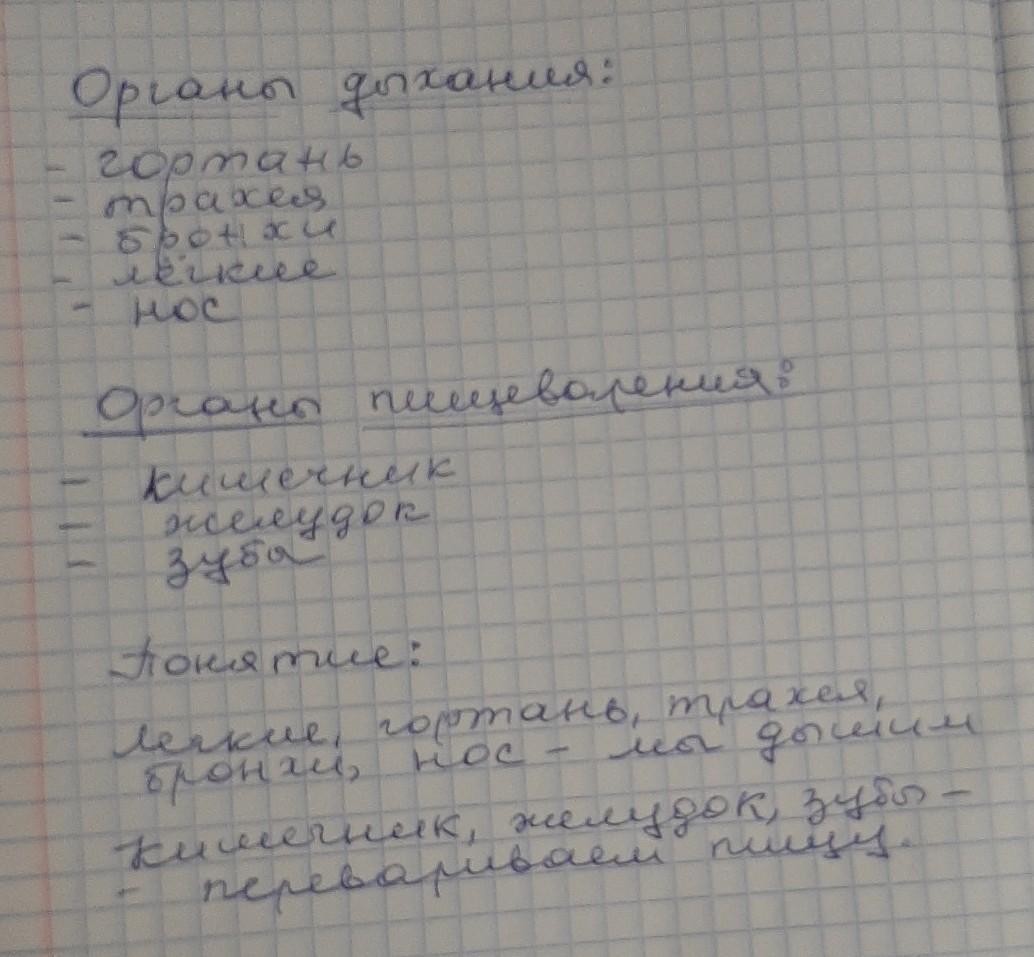 Органы дыхания:
- гортань
- трахея
- бронхи
- лёгкие
- нос
Органы пищеварения:
- кишечник
- желудок
- зубы
Понятие:
легкие, гортань, трахея,
бронхи, нос - мы дышим
кишечник, желудок, зубы -
- перевариваем пищу.